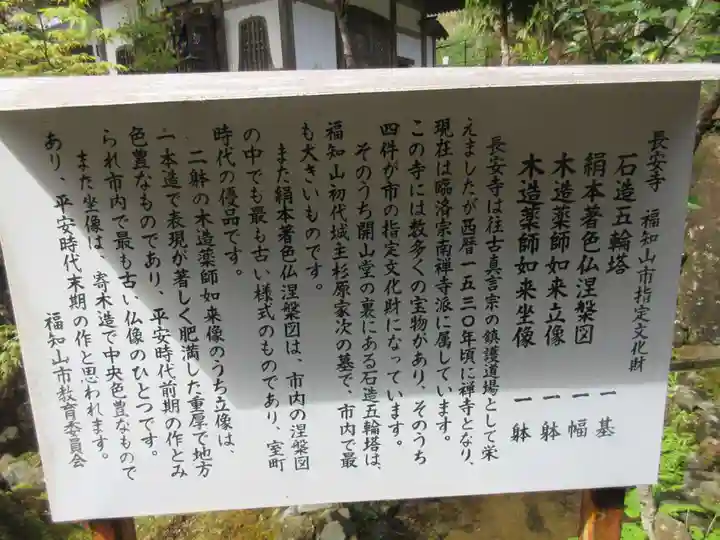 長安寺　福知山市指定文化財
石造五輪塔　一基
絹本著色仏涅槃図　一幅
木造薬師如来立像　一躰
木造薬師如来坐像　一躰
長安寺は往古真言宗の鎮護道場として栄
えましたが西暦一五三〇年頃に禅寺となり、
現在は臨済宗南禅寺派に属しています。
この寺には数多くの宝物があり、そのうち
四件が市の指定文化財になっています。
そのうち開山堂の裏にある石造五輪塔は、
福知山初代城主杉原家次の墓で、市内で最
も大きいものです。
また絹本著色仏涅槃図は、市内の涅槃図
の中でも最も古い様式のものであり、室町
時代の優品です。
二躰の木造薬師如来像のうち立像は、
一本造で表現が著しく肥満した重厚で地方
色豊なものであり、平安時代前期の作とみ
られ市内で最も古い仏像のひとつです。
また坐像は、寄木造で中央色豊なもので
あり、平安時代末期の作と思われます。
福知山市教育委員会